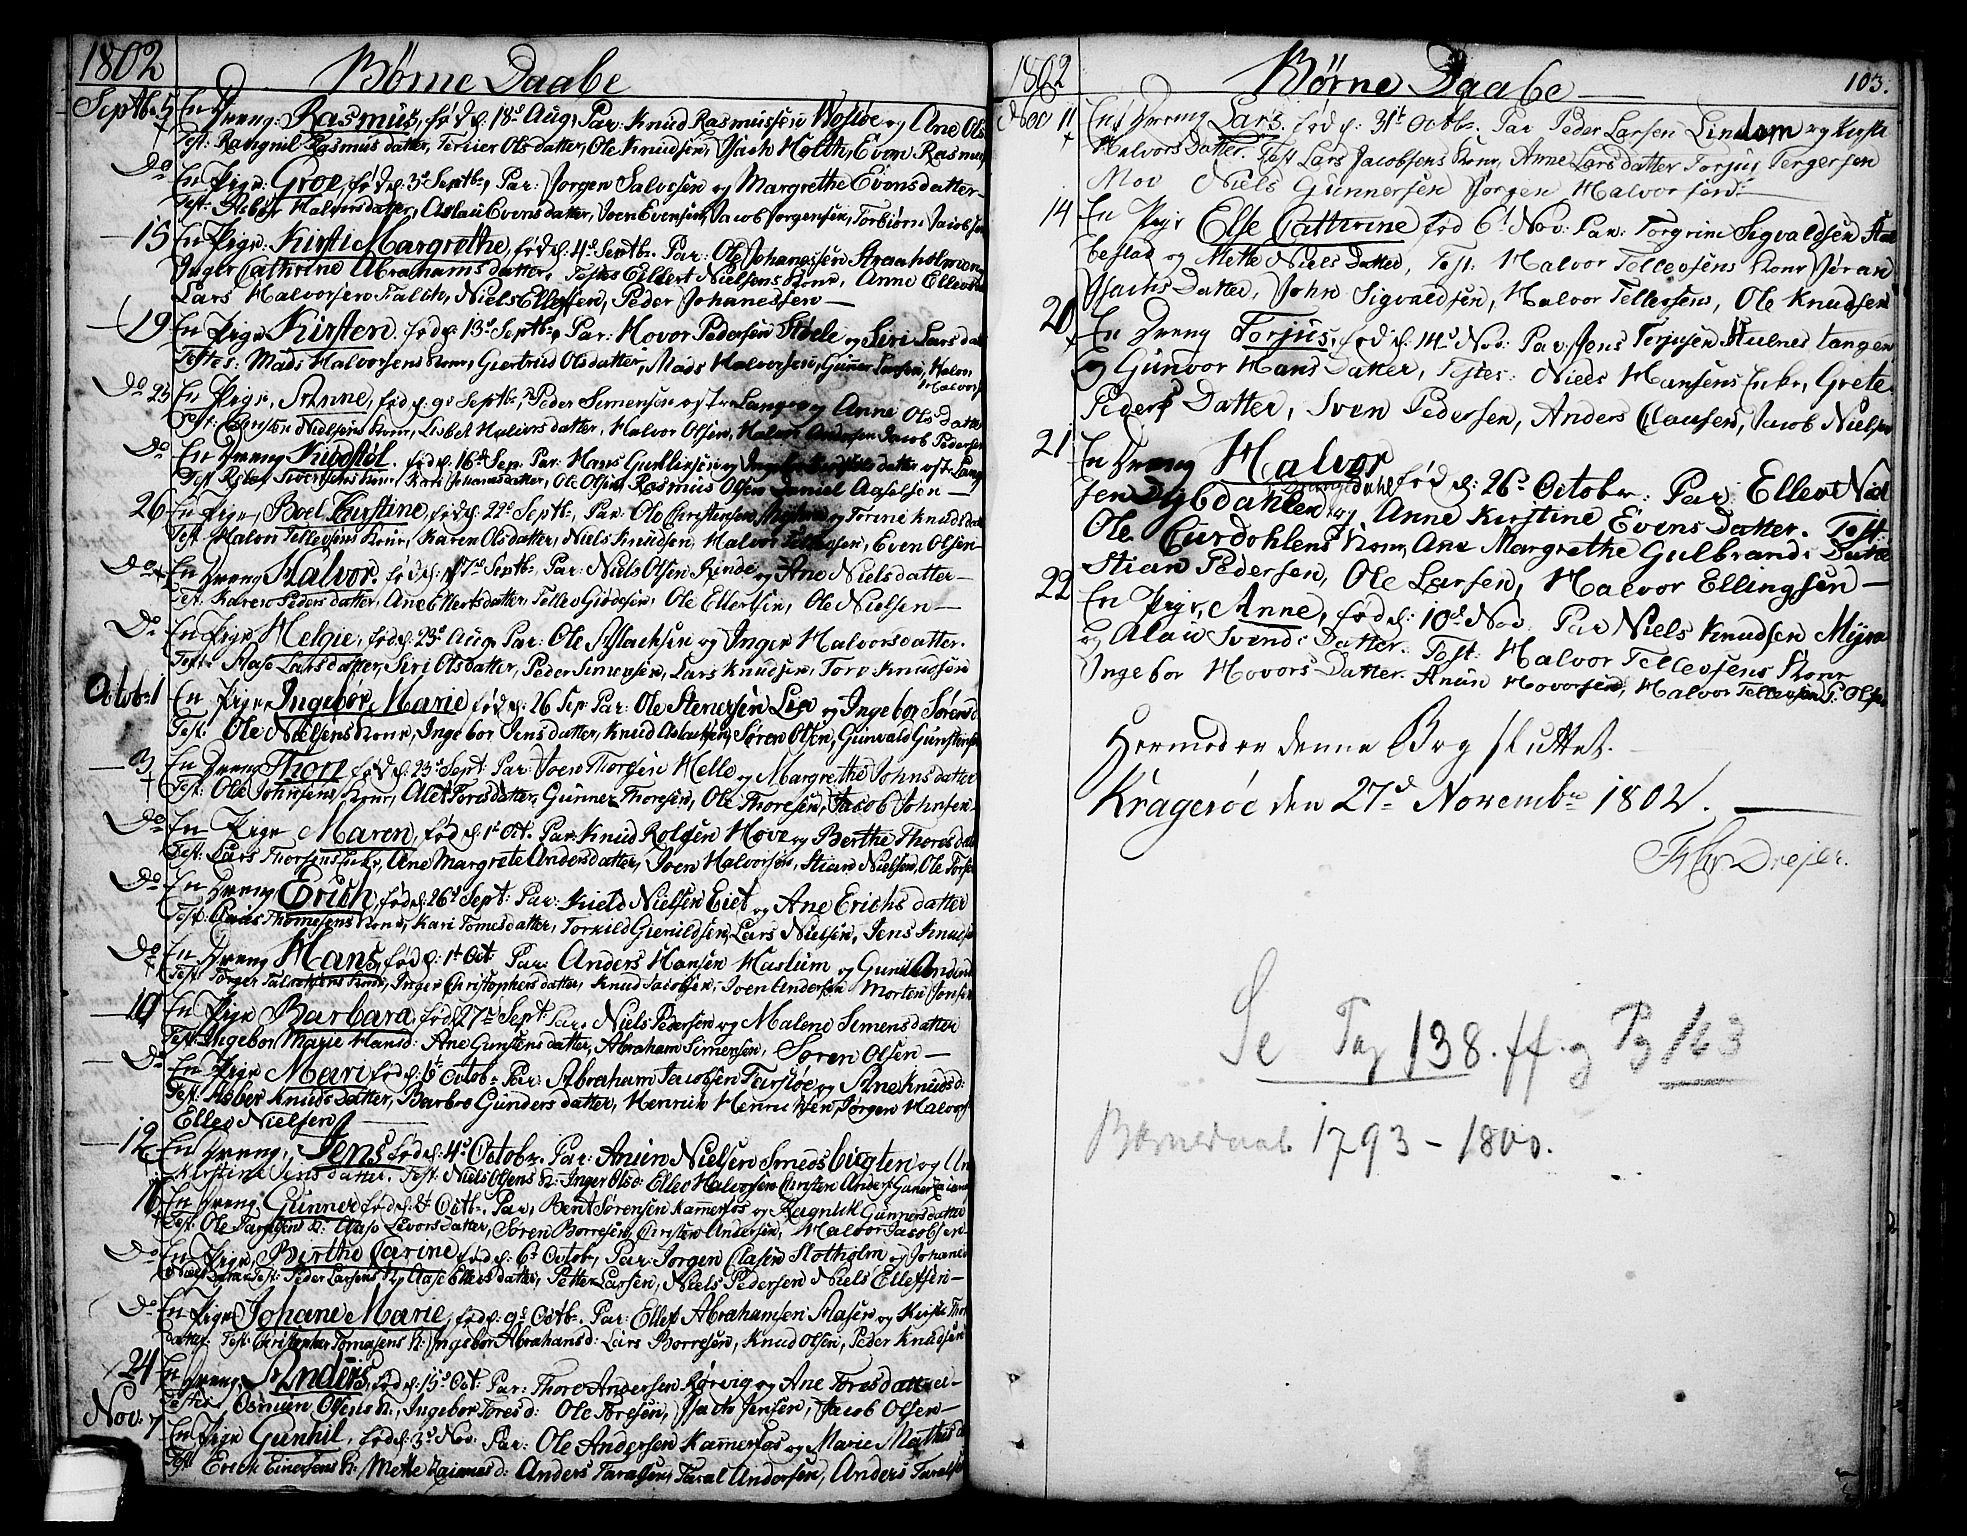 1802 Børne Daabe
Septbr 5 En Dreng: Rasmus, fød d: 18d Aug, Par: Knud Rasmussen og Ane Ols
Test: Rangnil Rasmusdatter, Olsdatter, Ole Knudsen, Isach Holth, Even Rasmus
Do En Pige: Groe, fød d: 3d Septbr, Par: Jørgen Salvesen og Margrethe Evensdatter
Test: Halvorsdatter, Aslau Evensdatter, Joen Evensen, Jacob Jørgensen, Torbiørn Jacobsen
15 En Pige: Kirsti Margrethe, fød d: 4d Septbr. Par: Ole Johanessen Straaholmen og
Inger Cathrine Abrahamsdatter. Testes Ellert Nielsens Kone, Anne
Lars Halvorsen Falch, Niels Ellefsen, Peder Johanessen
19 En Pige Kirsten, fød d: 13d Septbr, Par: Hovor Pedersen Støele og Siri Larsdat
Testes: Mads Halvorsens Kone, Giertrud Olsdatter, Mads Halvorsen, Gunner Larsen, Halvor
Halvors
Do 23 En Pige, Anne, fød d: 9d Septbr, Peder Simensen og Anne Ols Datter
Test: Nielsens Kone, Lisbet Halvorsdatter, Halvor Olsen, Halvor Andersen Jacob Pedersen
Do En Dreng Kiøstel. fød d: 16d Sep. Par: Hans
Test Sivertsens Kone, Kari Johannsdatter, Ole Olsen, Rasmus Olsen Daniel
26 En Pige, Boel Kirstine, fød d: 22d Septbr, Par: Ole Christensen og Torine Knudsdat
Test Halvor Tellefsens Kone, Karen Olsdatter, Niels Knudsen, Halvor Tellefsen, Even Olsen
Do En Dreng Halvor. fød d: 17d Septbr, Par: Niels Olsen Rinde og Ane Nielsdatter
Test: Karen Pedersdatter, Ane Ellertsdatter, Tellev Giødesen, Ole Ellertsen, Ole Nielsen
Do En Pige Helgie, fød d: 23d Aug Par: Ole Aslachsen og Inger Halvorsdatter.
Testes Aase Larsdatter, Siri Olsdatter, Peder Simensen, Lars Knudsen, Tore Knudsen
Octobr 1 En Pige Ingebor Marie fød d: 26 Sep Par: Ole Stenersen Lie og Ingebor Sørensd
Test: Ole Nielsens Kone, Ingebor Jensdatter, Knud Aslachsen, Søren Olsen, Gunvald Gunstensen
3 En Dreng Thore fød d: 23d Sept: Par: Joen Thorsen Helle og Margrethe Johnsdatter
Test: Ole Johnsens Kone, Alet Toresdatter, Gunner Thoresen, Ole Thoresen, Jacob Johnsen
Do En Pige Maren, fød d: 1t Oct. Par: Knud Rolfsen Hove og Berthe Thoresdat
Test: Lars Thorsens Enke, Ane Margrete Andersdatter, Joen Halvorsen, Stian Nielsen, Ole Torsen
Do En Dreng Erich, fød d: 26d Sept: Par: Kield Nielsen Eiet og Ane Erichsdatter
Test: Thomesens Kone, Kari Tomesdatter, Torkild Gieruldsen, Lars Nielsen, Jens Knudsen
Do En Dreng Hans, fød d: 1t Oct Par: Anders Hansen Haslum og Gunil Anders
Test Torger Talvolsens Kone, Inger Christophersdatter, Knud Jacobsen, Joen Andersen Morten Jonsen
10 En Pige Barbara fød 27d Sept Par. Niels Pedersen og Malene Simensdatter
Test: Ingebor Marie Hansd: Ane Gunstensdatter, Abraham Simensen, Søren Olsen
Do En Pige Mari fød d: 6t Octobr Par: Abraham Jacobsen Farsiøe og Ane Knudsd:
Test: Asber Knudsdatter, Barbro Gundersdatter, Henrich Henrichsen, Jørgen Halvors
Ellef Nielsen
12 En Dreng, Jens fød d: 4d Octobr. Par: Anun Nielsen Smedsbugten og An
Kirstine Jensdatter. Test: Niels Olsens K: Inger Olsd: Ellef Halvorsen Christen Anders:
16 En Dreng Gunner fød d: 8t Octb. Par, Bent Sørensen Kammerfos og Ragnild Gunnersdatter
Test: Ole K: Aase Levorsdatter, Søren Borresen, Christen Andersen, Halvor Jacobsen
Do En Pige, Berthe Carine fød d: 6t Octobr, Par: Jørgen Clasen Slotholm og Johane
Test: Peder Larsens K, Aase Ellefsdatter, Petter Larsen, Niels Pedersen Niels Ellefsen
Do En Pige Johane Marie, fød d: 9d Octbr. Par: Ellef Abrahamsen Aasen og Kirsti Thor
datter. Test: Christopher Tomasens K: Ingebor Abrahamsd: Lars Borresen, Knud Olsen, Peder Knudsen
24 En Dreng Anders, fød d: 15d Oct: Par: Thore Andersen Rørvig og Ane Toresdatter
Testes Osmun Olsens K:, Ingebor Toresd: Ole Toresen, Isach Jensen, Jacob Olsen
Nov: 7 En Pige Gunhil, fød d: 3d Nov: Par: Ole Andersen Kammerfos og Marie Mathisd
Test Erich Einersens K: Mette d: Anders Taralsen, Taral Andersen, Anders Taralsen
1802 Børne Daabe 103.
Nov 11 En Dreng Lars. fød d: 31t Octbr. Par Peder Larsen Lindom og Kirsti
Halvors Datter. Test Lars Jacobsens Kone, Anne Larsdatter Torjus Tergersen
Moe Niels Gunnersen Jørgen Halvorsen
14 En Pige Else Cathrine fød 6t Nov: Par: Torgrim Sigvaldsen
bestad og Mette Niels Datter, Test: Halvor Tellevsens Kone Jøran
Isachs Datter, John Sigvaldsen, Halvor Tellevsen, Ole Knudsen
20 En Dreng Torjus, fød d: 14d Nov: Par: Jens Terjusen Hulnes tangen
og Gunvor Hans Datter, Testes: Nieds Hansens Enke, Grete
Peders Datter, Sven Pedersen, Anders Clausen, Jacob Nielsen
21 En Dreng Halvor fød d: 26d Octobr: Par Ellert Niel
sen Dybdahlen og Anne Kirstine Evens Datter. Test:
Ole Kone, Ane Margrethe Gulbrands Datter
Stian Pedersen, Ole Larsen, Halvor Ellingsen
22 En Pige, Anne, fød d: 10d Nov. Par Niels Knudsen Myra
og Alau Svends Datter. Test: Halvor Tellevsens Kone
Ingebor Hovors Datter. Anun Hovorsen, Halvor Tellevsen P: Olsen
Hermed er denne Bog sluttet.
Kragerøe den 27d Novembr 1802.
Drejer.
Se Pag 138. ff. og P 163
Børnedaab 1793 - 1800.